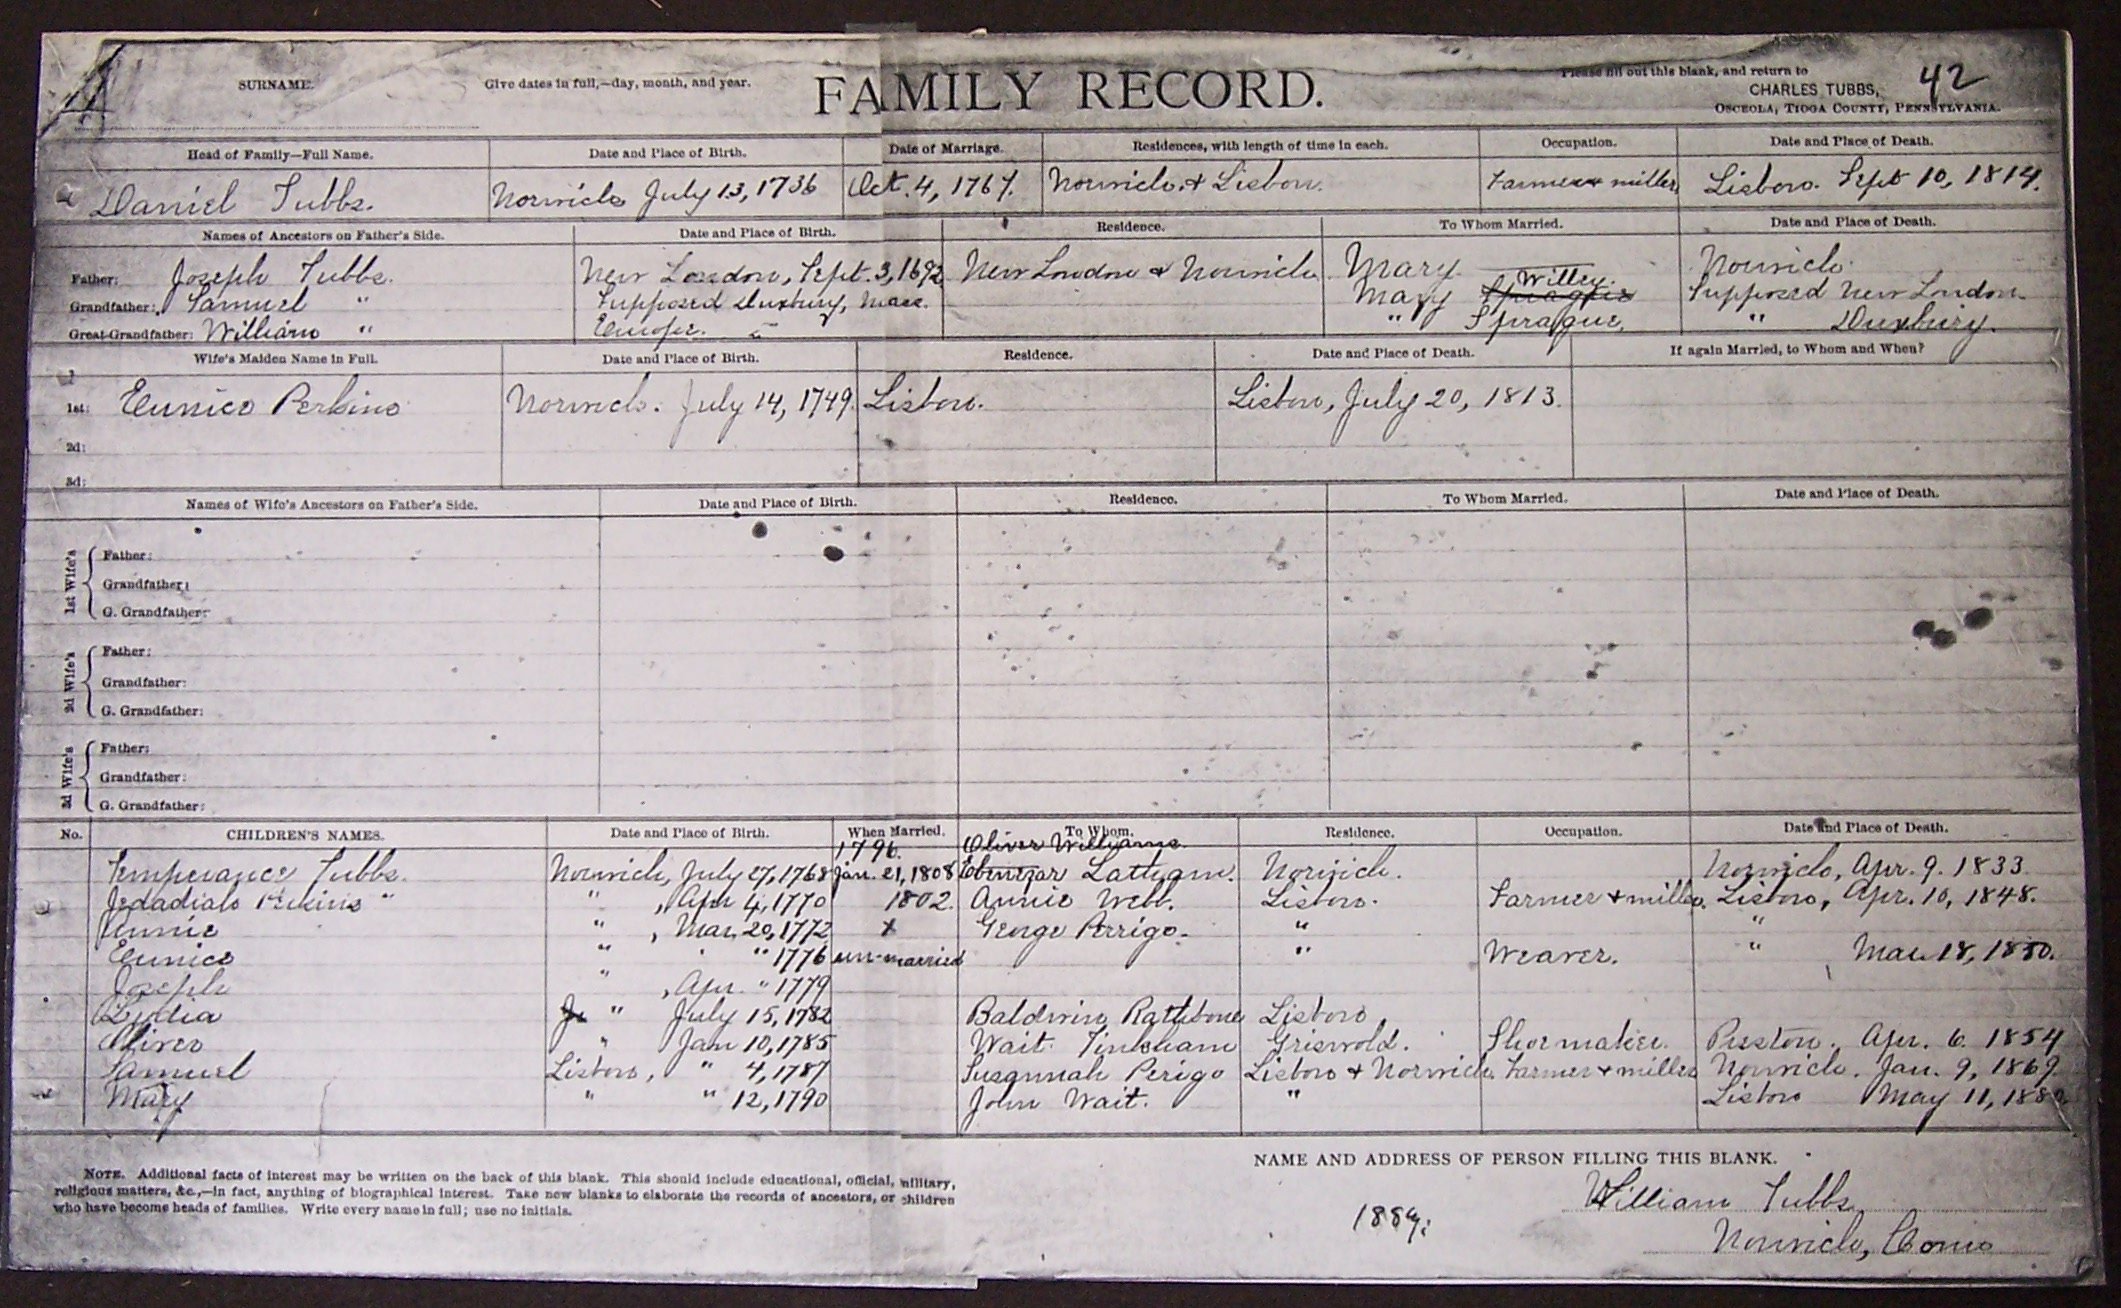 SURNAME. Give dates in full,—day, month, and year. FAMILY RECORD. Please fill out this blank, and return to 42
CHARLES TUBBS,
OSCEOLA, TIOGA COUNTY, PENNSYLVANIA.
Head of Family—Full Name. Date and Place of Birth. Date of Marriage. Residences, with length of time in each. Occupation. Date and Place of Death.
Daniel Tubbs. Norwich July 13, 1736 Oct. 4, 1767. Norwich & Lisbon. Farmer & miller Lisbon. Sept 10, 1814.
Names of Ancestors on Father's Side. Date and Place of Birth. Residence. To Whom Married. Date and Place of Death.
Father: Joseph Tubbs. New London, Sept. 3, 1692 New London & Norwich Mary Norwich.
Grandfather: Samuel " Supposed Duxbury, Mass. Mary Sprague Willey. Supposed New London.
Great-Grandfather: William " Europe. " Sprague. " Duxbury.
Wife's Maiden Name in Full. Date and Place of Birth. Residence. Date and Place of Death. If again Married, to Whom and When?
1st: Eunice Perkins Norwich. July 14, 1749. Lisbon. Lisbon, July 20, 1813.
2d:
3d:
Names of Wife's Ancestors on Father's Side. Date and Place of Birth. Residence. To Whom Married. Date and Place of Death.
1st Wife's
Father:
Grandfather:
G. Grandfather:
2d Wife's
Father:
Grandfather:
G. Grandfather:
3d Wife's
Father:
Grandfather:
G. Grandfather:
No. CHILDREN'S NAMES. Date and Place of Birth. When Married. To Whom. Residence. Occupation. Date and Place of Death.
1796. Oliver Williams.
Temperance Tubbs. Norwich, July 27, 1768 Jan. 21, 1808 Ebenezar Latham. Norwich. Norwich, Apr. 9. 1833.
Jedadiah Perkins " " , Apr 4, 1770 1802. Annie Webb. Lisbon. Farmer & miller. Lisbon, Apr. 10, 1848.
Annie " , Mar. 20, 1772 x George Perrigo. " "
Eunice " " " 1776 un-married " Weaver. " Mar. 18, 1850.
Joseph " , Apr. " 1779
Lydia " July 15, 1782 Baldwin Rathbone Lisbon
Oliver " Jan 10, 1785 Wait Tinkham Griswold. Shoemaker. Preston. Apr. 6. 1854
Samuel Lisbon, " 4, 1787 Susannah Perigo Lisbon & Norwich. Farmer & miller Norwich. Jan. 9, 1869.
Mary " " 12, 1790 John Wait. " Lisbon May 11, 188
NOTE. Additional facts of interest may be written on the back of this blank. This should include educational, official, military,
religious matters, &c.,—in fact, anything of biographical interest. Take new blanks to elaborate the records of ancestors, or children
who have become heads of families. Write every name in full; use no initials.
NAME AND ADDRESS OF PERSON FILLING THIS BLANK.
William Tubbs
Norwich, Conn